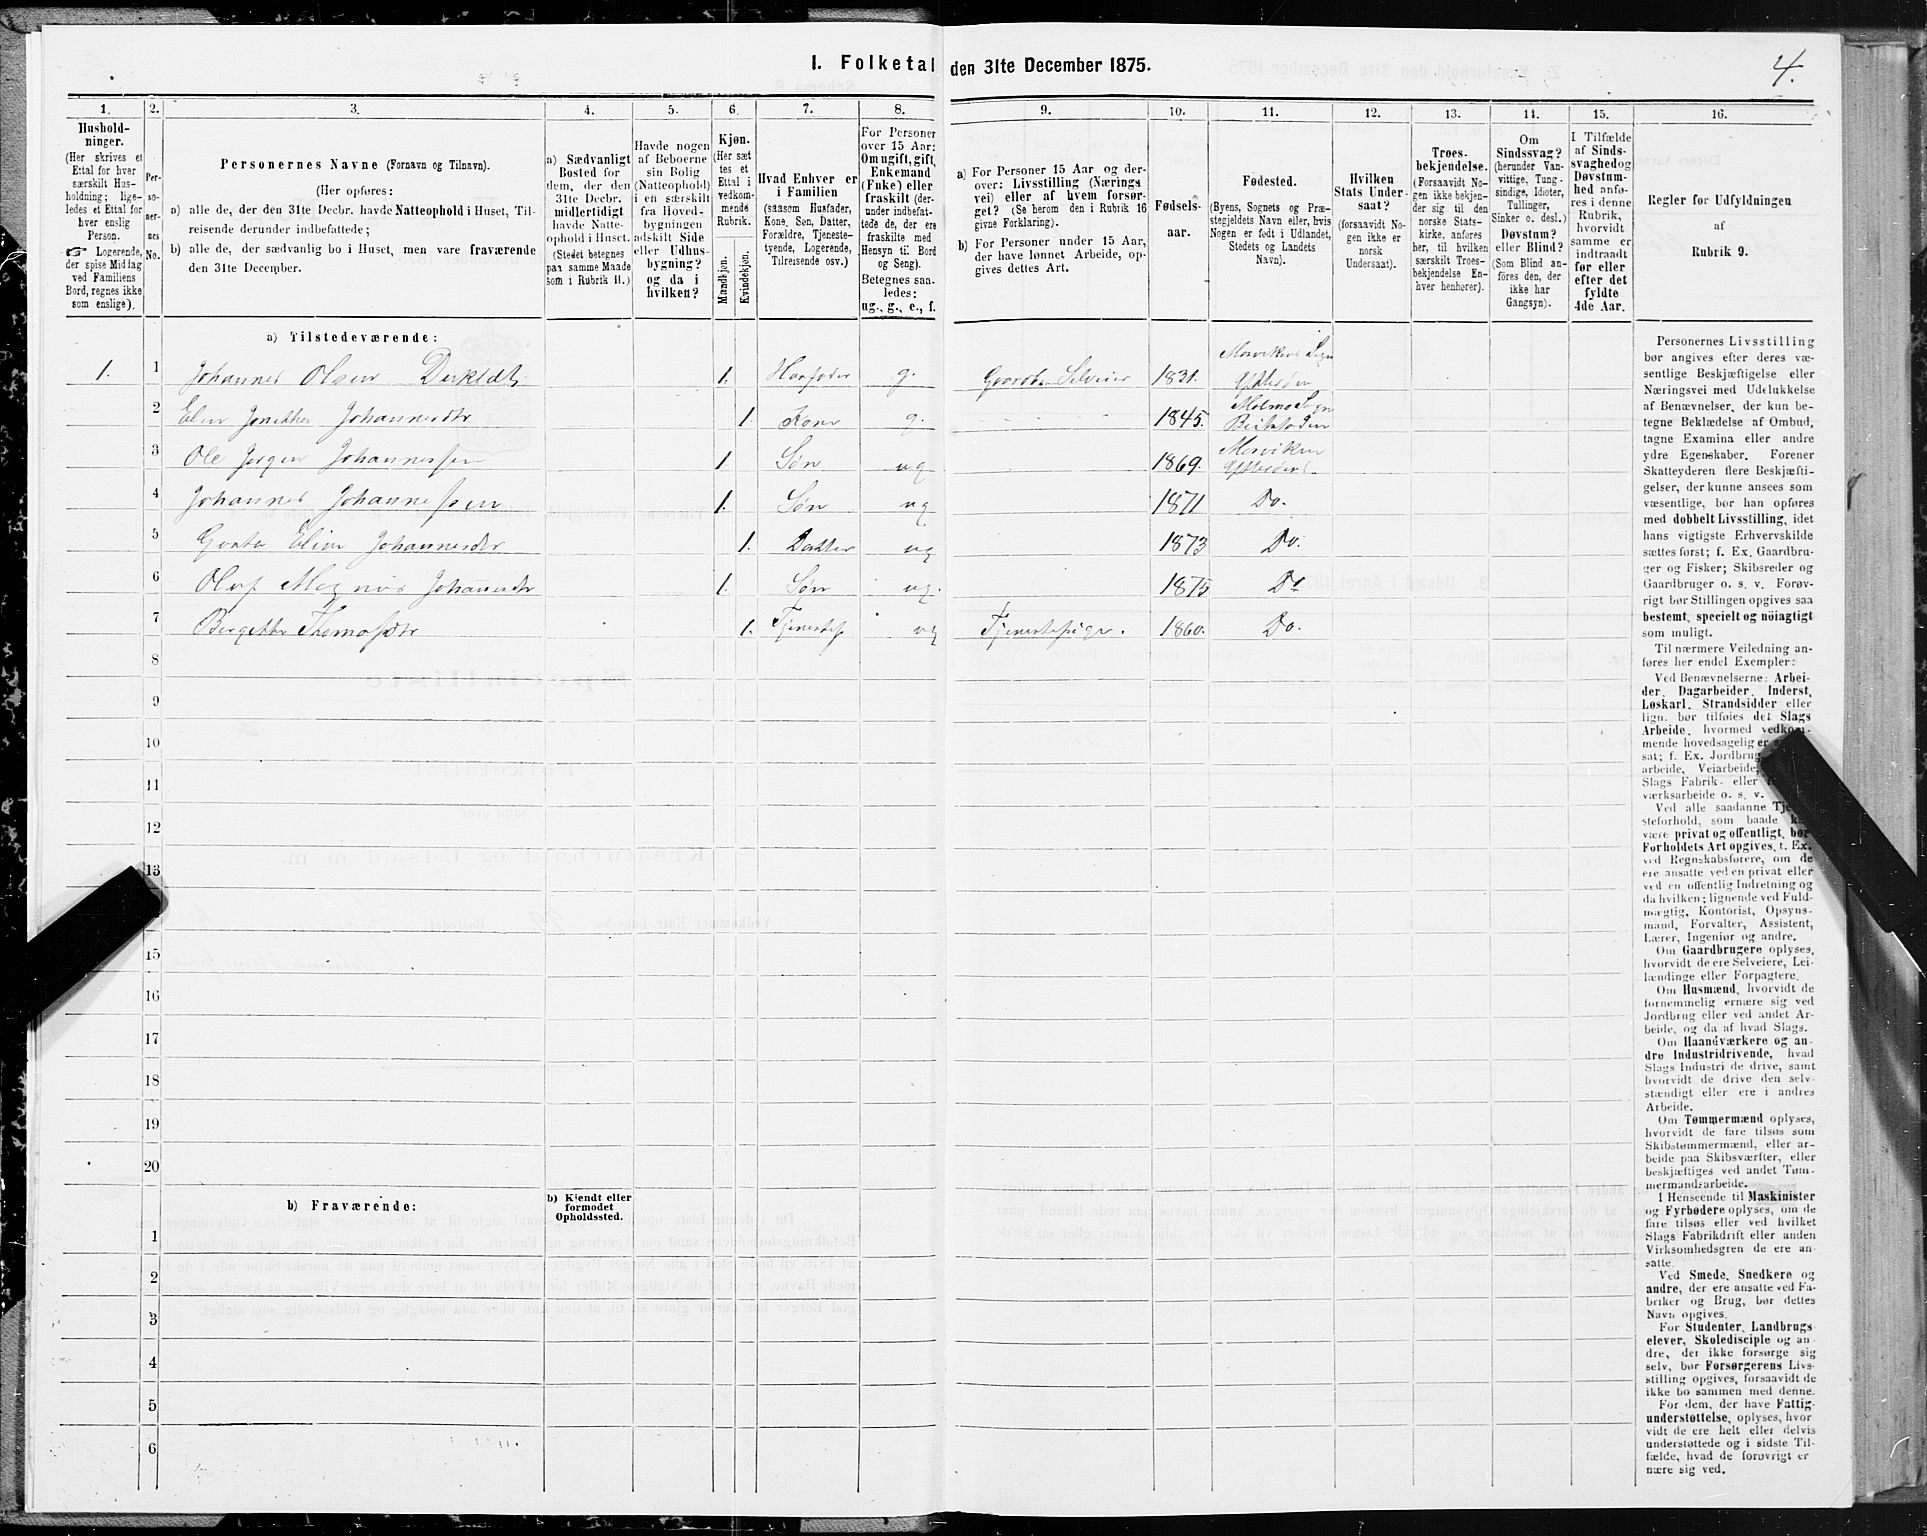 I. Folketal den 31te December 1875.
4.
1.
Hushold-
ninger.
(Her skrives et
Ettal for hver
særskilt Hus-
holdning; lige-
ledes et Ettal for
hver enslig
Person.
☞ Logerende,
der spise Middag
ved Familiens
Bord, regnes ikke
som enslige).
2.
Per-
so-
ner-
nes
No.
3.
Personernes Navne (Fornavn og Tilnavn).
(Her opføres:
a) alle de, der den 31te Decbr. havde Natteophold i Huset, Til-
reisende derunder indbefattede;
b) alle de, der sædvanlig bo i Huset, men vare fraværende
den 31te December.
4.
a) Sædvanligt
Bosted for
dem, der den
31te Decbr.
midlertidigt
havde Natte-
ophold i Huset.
(Stedet betegnes
paa samme Maade
som i Rubrik 11.)
5.
Havde nogen
af Beboerne
sin Bolig
(Natteophold)
i en særskilt
fra Hoved-
bygningen
adskilt Side
eller Udhus-
bygning?
og da i
hvilken?
6.
Kjøn.
(Her sæt
tes et
Ettal i
vedkom-
mende
Rubrik.
Mandkjøn.
Kvindekjøn.
7.
Hvad Enhver er
i Familien
(saasom Husfader,
Kone, Søn, Datter,
Forældre, Tjeneste-
tyende, Logerende,
Tilreisende osv.)
8.
For Personer
over 15 Aar:
Om ugift, gift,
Enkemand
(Enke) eller
fraskilt (der-
under indbefat-
tede de, der ere
fraskilte med
Hensyn til Bord
og Seng).
Betegnes saa-
ledes:
ug., g., e., f.
9.
a) For Personer 15 Aar og der-
over: Livsstilling (Nærings
vei) eller af hvem forsør-
get? (Se herom den i Rubrik 16
givne Forklaring).
b) For Personer under 15 Aar,
der have lønnet Arbeide, op-
gives dettes Art.
10.
Fødsels-
aar.
11.
Fødested.
(Byens, Sognets og Præ-
stegjeldets Navn eller, hvis
Nogen er født i Udlandet,
Stedets og Landets
Navn).
12.
Hvilken
Stats Under-
saat?
(forsaavidt No-
gen ikke er
norsk
Undersaat).
13.
Troes-
bekjendelse.
(Forsaavidt No-
gen ikke bekjen-
der sig til den
norske Stats-
kirke, anfø­res
her, til hvilken
særskilt Troes-
bekjendelse En-
hver henhører).
14.
Om
Sindssvag?
(herunder Van-
vittige, Tung-
sindige, Idioter,
Tullinger,
Sinker o. desl.)
Døvstum?
eller Blind?
(Som Blind an-
føres den, der
ikke har
Gangsyn).
15.
I Tilfælde
af Sinds-
svaghed og
Døvstum-
hed anfø-
res i denne
Rubrik,
hvorvidt
samme er
indtraadt
før eller
efter det
fyldte
4de Aar.
16.
Regler for Udfyldningen
af
Rubrik 9.
a) Tilstedeværende:
1. 1 Johannes Olsen 1. g. Selveier 1831.
2 Johannesdtr 1. Kone g. 1845.
3 Ole Jørgen Johannessen 1 Søn ug 1869.
4 Johannes Johannessen 1. Søn ug 1871 Do.
5 Johannesdtr 1. Datter ug 1873 Do.
6 1. Søn ug. 1875 Do
7 Thomasdtr 1. ug Tjenestepige. 1860. Do.
8
9
10
11
12
13
15
16
17
18
19
20
b) Fraværende:
b) Kjendt eller
formodet
Opholdssted.
1
2
3
4
5
6
Personernes Livsstilling
bør angives efter deres væ-
sentlige Beskjæftigelse eller
Næringsvei med Udelukkelse
af Benævnelser, der kun be-
tegne Beklædelse af Ombud,
tagne Examina eller andre
ydre Egenskaber. Forener
Skatteyderen flere Beskjæfti-
gelser, der kunne ansees som
væsentlige, bør han opføres
med dobbelt Livsstilling, idet
hans vigtigste Erhvervskilde
sættes først; f. Ex. Gaardbru-
ger og Fisker; Skibsreder og
Gaardbruger o. s. v. Forøv-
rigt bør Stillingen opgives saa
bestemt, specielt og nöiagtigt
som muligt.
Til nærmere Veiledning an-
føres her endel Exempler:
Ved Benævnelserne: Arbei-
der, Dagarbeider, Inderst,
Løskarl, Strandsidder eller
lign. bør tilføies det Slags
Arbeide, hvormed vedkom-
mende hovedsagelig er
sat; f. Ex. Jordbrug
arbeide, Veiarbeide,
Slags Fabrik- eller
værksarbeide o. s. v.
Ved alle saadanne
steforhold, som baade
være privat og offentligt, bør
Forholdets Art opgives, f. Ex.
ved Regnskabsførere, om de
ere ansatte ved en privat eller
ved en offentlig Indretning og
da hvilken; lignende ved Fuld-
mægtig, Kontorist, Opsyns-
mand, Forvalter, Assistent,
Lærer, Ingeniør og andre.
Om Gaardbrugere oplyses,
hvorvidt de ere Selveiere, Lei-
lændinge eller Forpagtere.
Om Husmænd, hvorvidt de
fornemmelig ernære sig ved
Jordbrug eller ved andet Ar-
beide, og da af hvad Slags.
Om Haandværkere og an-
dre Industridrivende, hvad
Slags Industri de drive, samt
hvorvidt de drive den selv-
stændigt eller ere i andres
Arbeide.
Om Tømmermænd oplyses,
hvorvidt de fare tilsøs som
Skibstømmermænd, eller ar-
beide paa Skibsværfter, eller
beskjæftiges ved andet Tøm-
mermandsarbeide.
I Henseende til Maskinister
og Fyrbødere oplyses, om de
fare tilsøs eller ved hvilket
Slags Fabrikdrift eller anden
Virksomhedsgren de ere an-
satte.
Ved Smede, Snedkere og
andre, der ere ansatte ved Fa-
briker og Brug, bør dettes
Navn opgives.
For Studenter, Landbrugs
elever, Skoledisciple og an-
dre, der ikke forsørge sig
selv, bør Forsørgerens Livs-
stilling opgives, forsaavidt de
ikke bo sammen med denne.
For dem, der have Fattig-
understøttelse, oplyses, hvor
vidt de ere helt eller delvis
understøttede og i sidste Til-
fælde, hvad de forøvrigt er
nære sig ved.